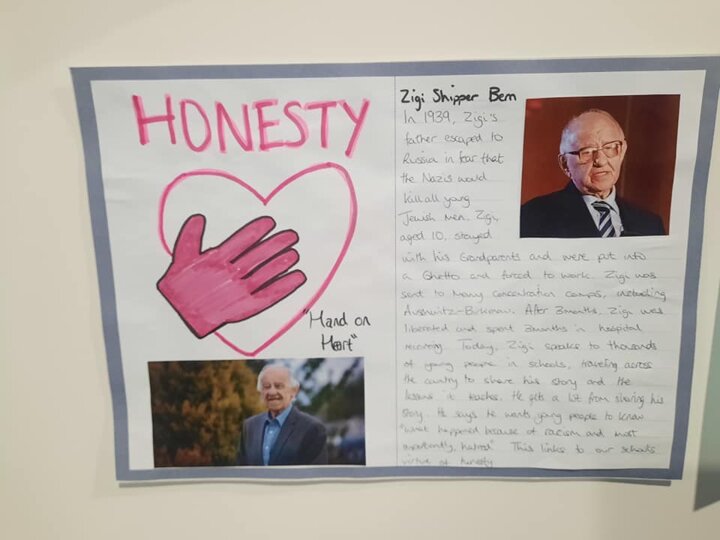 HONESTY
"Hand on
Heart"
Zigi Shipper Bem
In 1939, Zigi's
father escaped to
Russia in fear that
the Nazis would
kill all young
Jewish men. Zigi,
aged 10, stayed
with his Grandparents and were put into
a Ghetto and forced to work. Zigi was
sent to many concentration camps, including
Auschwitz-Birkenau. After 3months, Zigi was
liberated and spent 3months in hospital
recovering. Today, Zigi speaks to thousands
of young people in schools, traveling across
the country to share his story and the
lessons it teaches. He gets a lot from sharing his
story. He says he wants young people to know
"what happened because of racism and most
importantly, hatred" This links to our schools
virtue of honesty